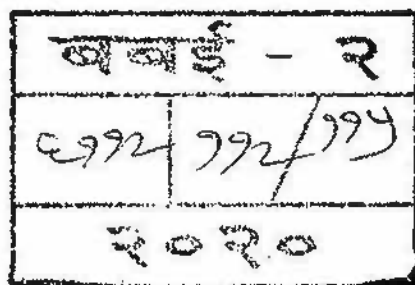 बबई - २
८११२ ११२/११५
२०२०